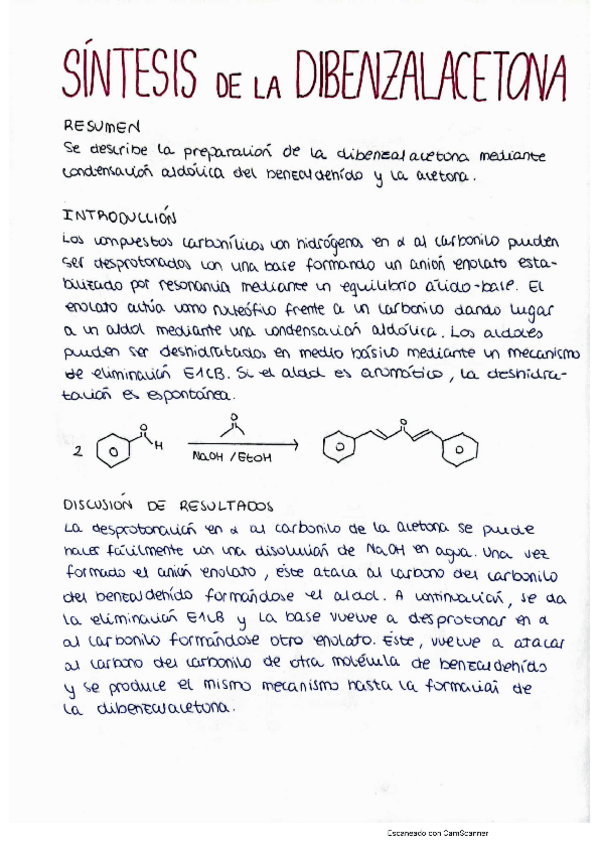 SÍNTESIS DE LA DIBENZALACETONA
RESUMEN
Se describe la preparación de la dibenzalacetona mediante
condensación aldólica del benzaldehído y la acetona.
INTRODUCCIÓN
Los compuestos carbonílicos con hidrógenos en α al carbonilo pueden
ser desprotonados con una base formando un anión enolato esta-
bilizado por resonancia mediante un equilibrio ácido-base. El
enolato actúa como nucleófilo frente a un carbonilo dando lugar
a un aldol mediante una condensación aldólica. Los aldoles
pueden ser deshidratados en medio básico mediante un mecanismo
de eliminación E1CB. Si el aldol es aromático, la deshidra-
tación es espontánea.
2 O H O NaOH / EtOH O
DISCUSIÓN DE RESULTADOS
La desprotonación en α al carbonilo de la acetona se puede
hacer fácilmente con una disolución de NaOH en agua. Una vez
formado el anión enolato, éste ataca al carbono del carbonilo
del benzaldehído formándose el aldol. A continuación, se da
la eliminación E1CB y la base vuelve a desprotonar en α
al carbonilo formándose otro enolato. Éste, vuelve a atacar
al carbono del carbonilo de otra molécula de benzaldehído
y se produce el mismo mecanismo hasta la formación de
la dibenzalacetona.
Escaneado con CamScanner